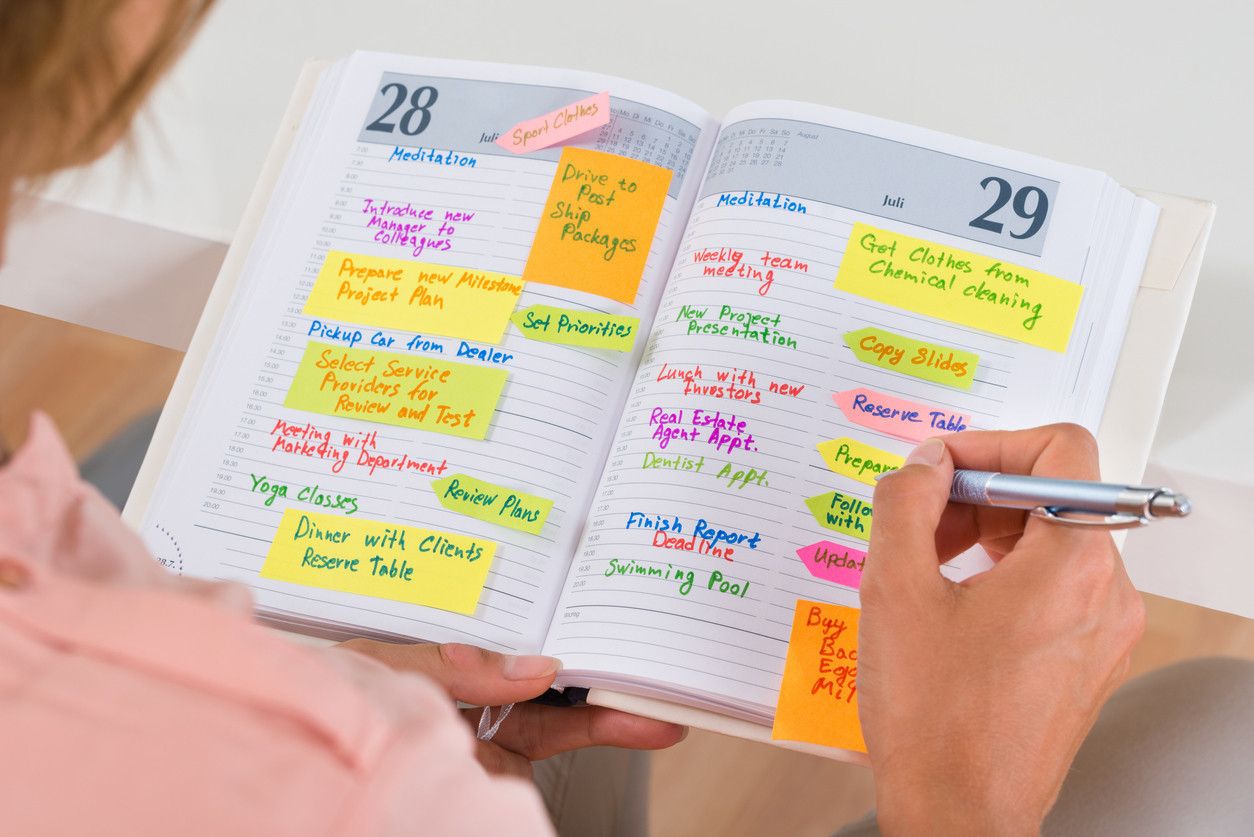 28
Juli
Sport Clothes
Meditation
Drive to
Post
Ship
Packages
Introduce new
Manager to
Colleagues
Prepare new Milestone
Project Plan
Set Priorities
Pickup Car from Dealer
Select Service
Providers for
Review and Test
Meeting with
Marketing Department
Review Plans
Yoga Classes
Dinner with Clients
Reserve Table
28.7.
Mo Di Mi Do Fr Sa So August
Juli
29
Meditation
Get Clothes from
Chemical cleaning
Weekly team
meeting
New Project
Presentation
Copy Slides
Lunch with new
Investors
Reserve Table
Real Estate
Agent Appt.
Prepare
Dentist Appt.
Follo
with
Finish Report
Deadline
Updat
Swimming Pool
Buy
Bac